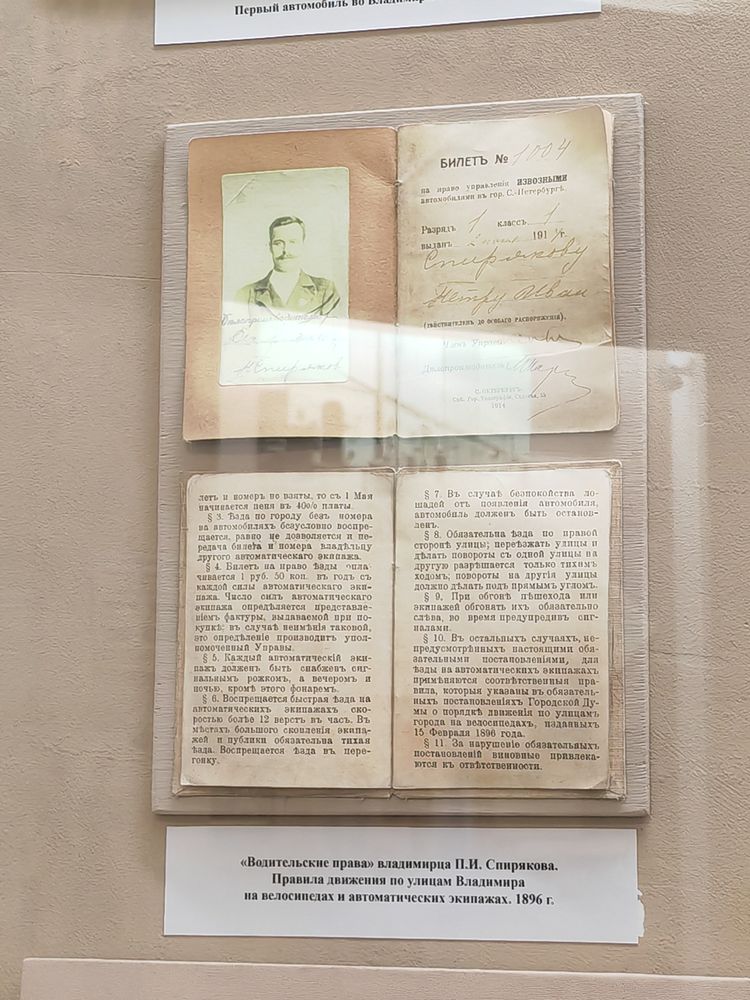 Первый автомобиль во Владимир
БИЛЕТЪ № 1004
на право управленія ИЗВОЗНЫМИ
автомобилями въ гор. С.-Петербургѣ.
Разрядъ 1 классъ 1
выданъ 191 г.
Спирякову
Петру Иван
(дѣйствителен до особаго распоряженія).
Член Управы
Дѣлопроизводитель
С. ПЕТЕРБУРГЪ.
1914
Дѣлопроизводитель
Спиряков
летъ и номеръ не взяты, то съ 1 Мая
начинается пеня въ 40% платы.
§ 3. Ѣзда по городу безъ номера
на автомобиляхъ безусловно воспре-
щается, равно не дозволяется и пе-
редача билета и номера владѣльцу
другого автоматическаго экипажа.
§ 4. Билетъ на право ѣзды опла-
чивается 1 руб. 50 коп. въ годъ съ
каждой силы автоматическаго эки-
пажа. Число силъ автоматическаго
экипажа опредѣляется представле-
ніемъ фактуры, выдаваемой при по-
купкѣ: въ случаѣ неимѣнія таковой,
это опредѣленіе производитъ упол-
номоченный Управы.
§ 5. Каждый автоматическій эки-
пажъ долженъ быть снабженъ сиг-
нальнымъ рожкомъ, а вечеромъ и
ночью, кромѣ этого фонаремъ.
§ 6. Воспрещается быстрая ѣзда на
автоматическихъ экипажахъ ско-
ростью болѣе 12 верстъ въ часъ. Въ
мѣстахъ большого скопленія экипа-
жей и публики обязательна тихая
ѣзда. Воспрещается ѣзда въ пере-
гонку.
§ 7. Въ случаѣ безпокойства ло-
шадей отъ появленія автомобиля,
автомобиль долженъ быть останов-
ленъ.
§ 8. Обязательна ѣзда по правой
сторонѣ улицы; переѣзжать улицы и
дѣлать повороты съ одной улицы на
другую разрѣшается только тихимъ
ходомъ; повороты на другія улицы
должно дѣлать подъ прямымъ угломъ.
§ 9. При обгонѣ пѣшехода или
экипажей обгонять ихъ обязательно
слѣва, во время предупредивъ сиг-
налами.
§ 10. Въ остальныхъ случаяхъ, не-
предусмотрѣнныхъ настоящими обя-
зательными постановленіями, для
ѣзды на автоматическихъ экипажахъ
примѣняются соотвѣтственныя пра-
вила, которыя указаны въ обязатель-
ныхъ постановленіяхъ Городской Ду-
мы о порядкѣ движенія по улицамъ
города на велосипедахъ, изданныхъ
15 Февраля 1896 года.
§ 11. За нарушеніе обязательныхъ
постановленій виновные привлека-
ются къ отвѣтственности.
«Водительские права» владимирца П.И. Спирякова.
Правила движения по улицам Владимира
на велосипедах и автоматических экипажах. 1896 г.